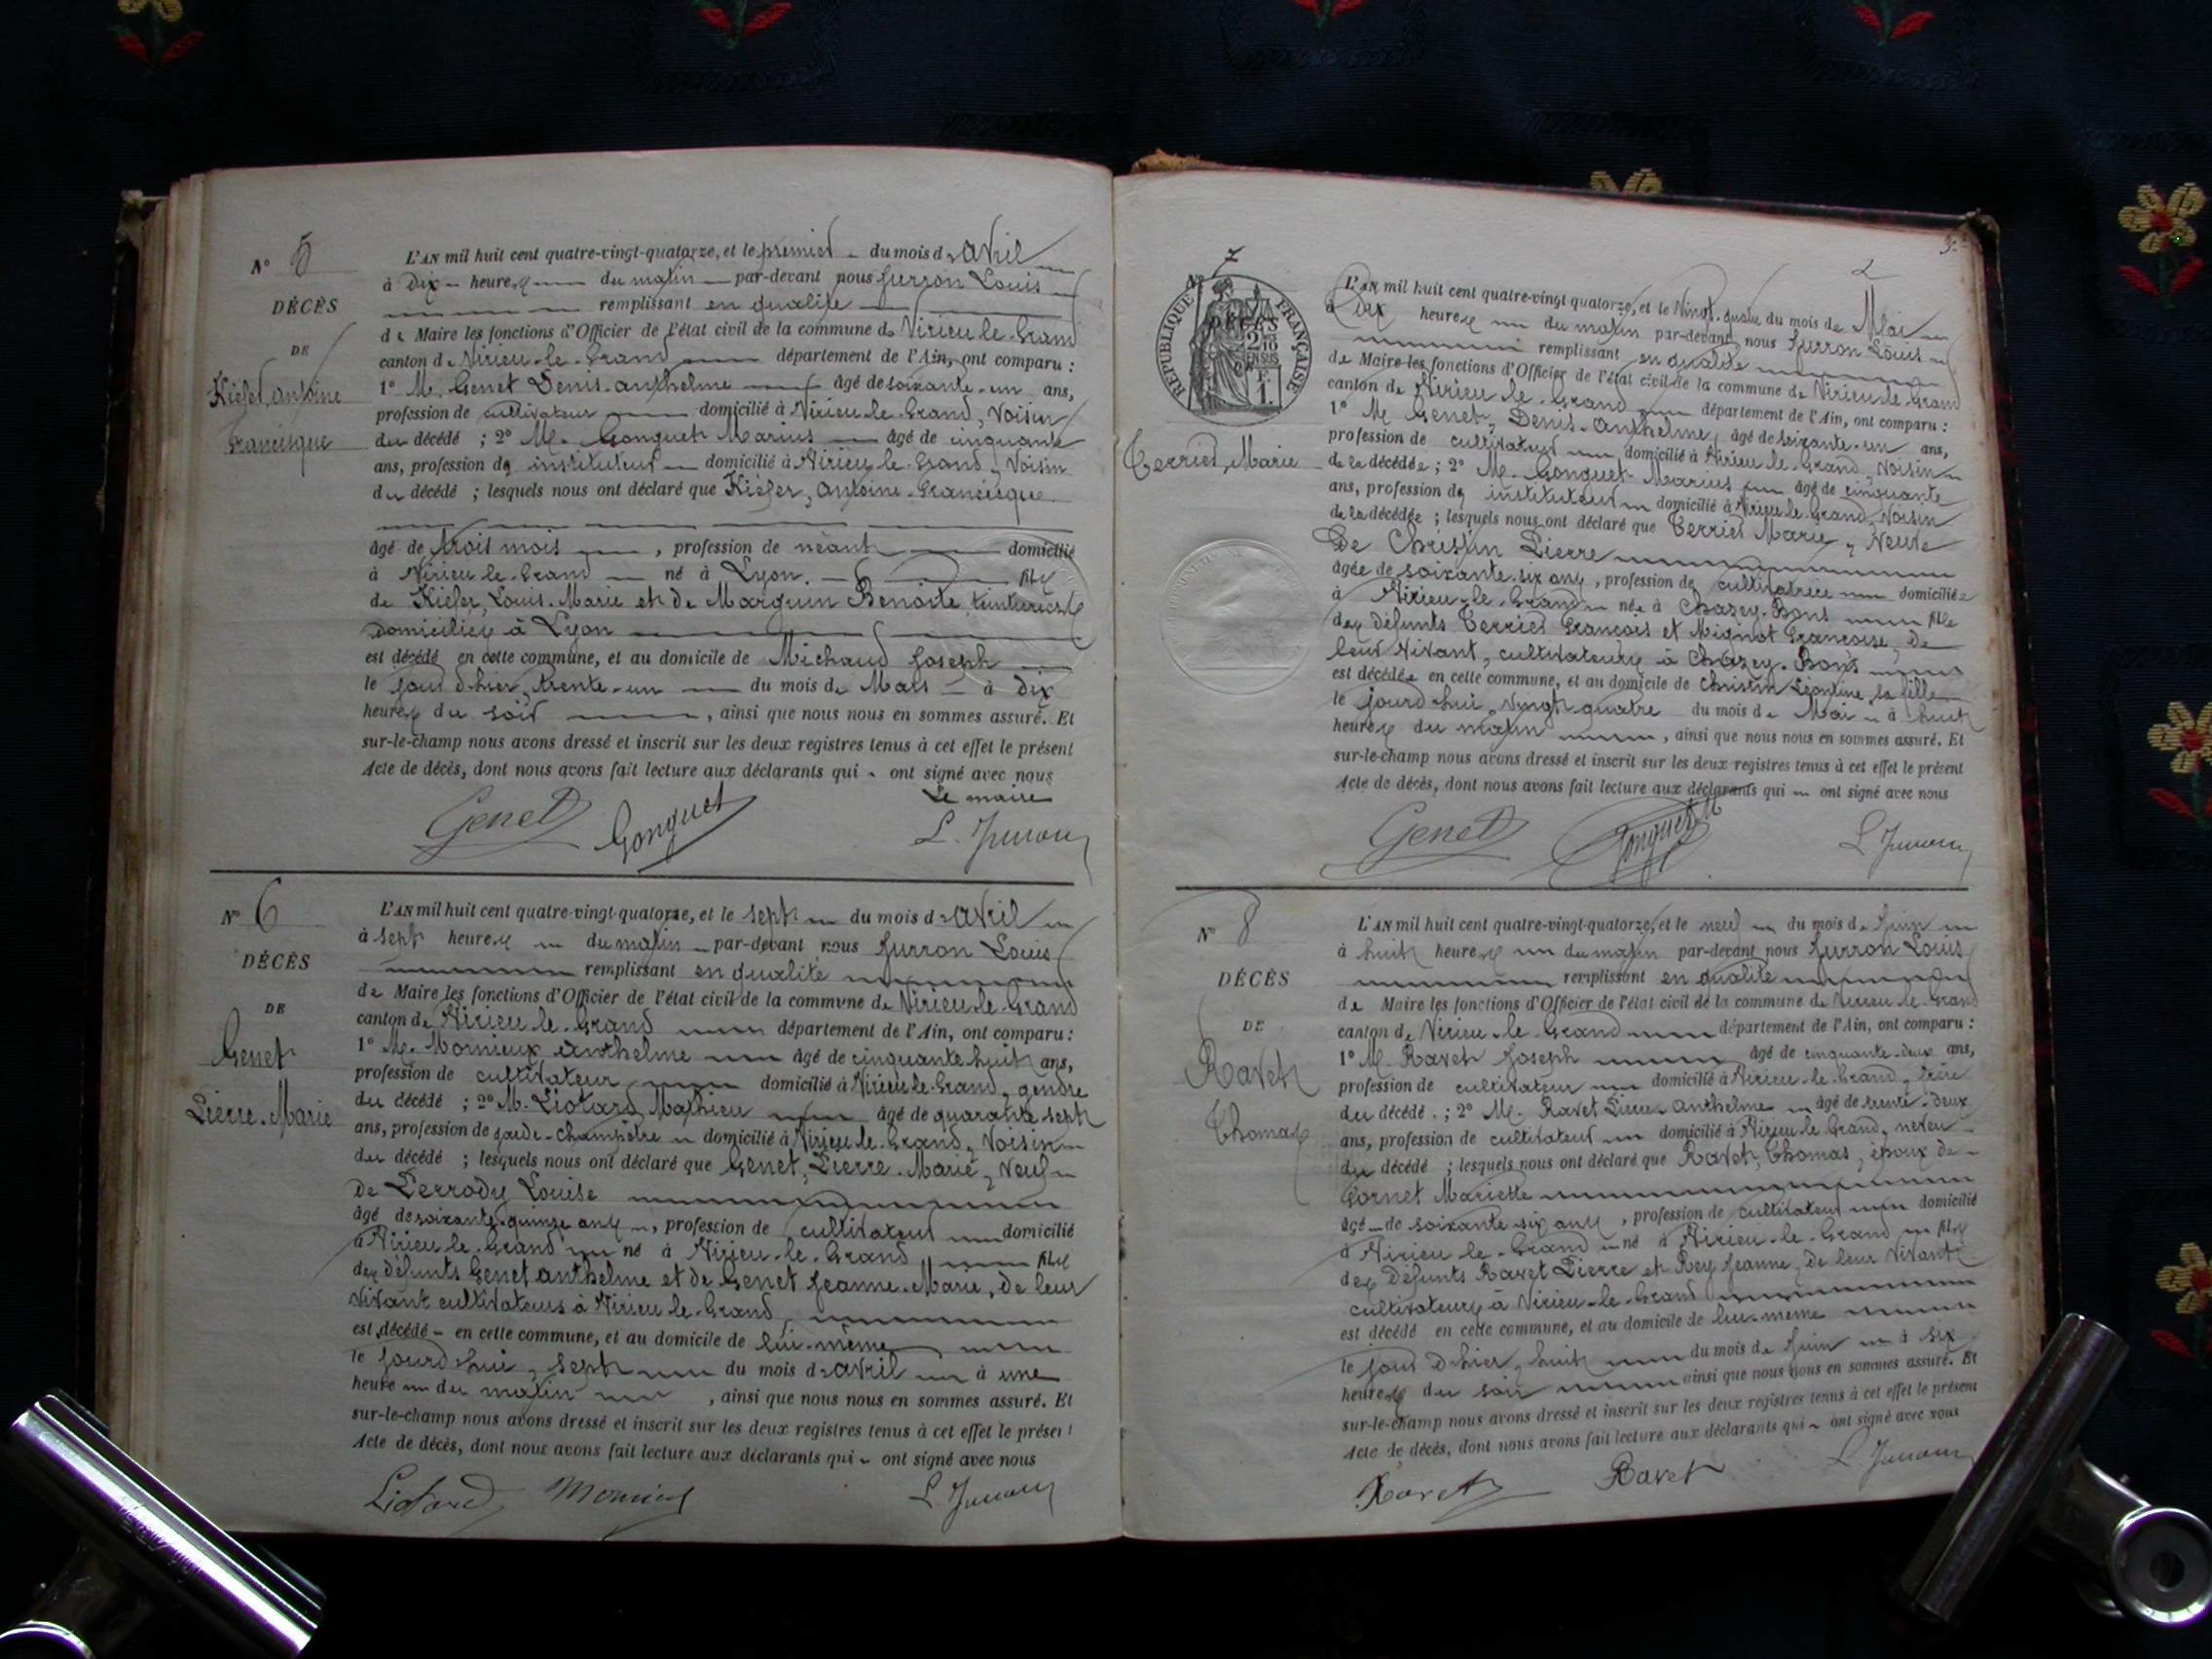 N° 5
DÉCÈS
DE
Kiefer, Antoine
Francisque
L'AN mil huit cent quatre-vingt-quatorze, et le premier du mois d'avril
à Dix heures du matin par-devant nous Jurron Louis
remplissant en qualité
de Maire les fonctions d'Officier de l'état civil de la commune de Virieu-le-Grand
canton de Virieu-le-Grand département de l'Ain, ont comparu :
1° M. Genet Denis-Anthelme âgé de soixante-un ans,
profession de cultivateur domicilié à Virieu-le-Grand, Voisin
du décédé ; 2° M. Gonguet Marius âgé de cinquante
ans, profession de instituteur domicilié à Virieu-le-Grand, Voisin
du décédé ; lesquels nous ont déclaré que Kiefer, Antoine-Francisque
âgé de trois mois , profession de néant domicilié
à Virieu-le-Grand né à Lyon. fils
de Kiefer, Louis-Marie et de Marguin Benoite, teinturiers
domiciliés à Lyon
est décédé en cette commune, et au domicile de Michaud Joseph
le jour d'hier, trente-un du mois de Mars à dix
heures du soir , ainsi que nous nous en sommes assuré. Et
sur-le-champ nous avons dressé et inscrit sur les deux registres tenus à cet effet le présent
Acte de décès, dont nous avons fait lecture aux déclarants qui ont signé avec nous
Le maire
Genet Gonguet L. Jurron
N° 6
DÉCÈS
DE
Genet
Pierre-Marie
L'AN mil huit cent quatre-vingt-quatorze, et le sept du mois d'avril
à sept heures du matin par-devant nous Jurron Louis
remplissant en qualité
de Maire les fonctions d'Officier de l'état civil de la commune de Virieu-le-Grand
canton de Virieu-le-Grand département de l'Ain, ont comparu :
1° M. Momieux Anthelme âgé de cinquante-huit ans,
profession de cultivateur domicilié à Virieu-le-Grand, gendre
du décédé ; 2° M. Liotard, Mathieu âgé de quarante-sept
ans, profession de garde-champêtre domicilié à Virieu-le-Grand, Voisin
du décédé ; lesquels nous ont déclaré que Genet, Pierre-Marie, Veuf
de Perrody Louise
âgé de soixante-quinze ans , profession de cultivateur domicilié
à Virieu-le-Grand né à Virieu-le-Grand fils
des défunts Genet Anthelme et de Genet Jeanne-Marie, de leur
vivant cultivateurs à Virieu-le-Grand
est décédé en cette commune, et au domicile de lui-même
le jourd'hui, sept du mois d'avril à une
heure du matin , ainsi que nous nous en sommes assuré. Et
sur-le-champ nous avons dressé et inscrit sur les deux registres tenus à cet effet le présent
Acte de décès, dont nous avons fait lecture aux déclarants qui ont signé avec nous
Liotard L. Jurron
3
N° 7
RÉPUBLIQUE FRANÇAISE
DÉCÈS
2/10
EN SUS
F.
1.
Terrier, Marie
2
L'AN mil huit cent quatre-vingt quatorze, et le Vingt-quatre du mois de Mai
à Dix heures du matin par-devant nous Jurron Louis
remplissant en qualité
de Maire les fonctions d'Officier de l'état civil de la commune de Virieu-le-Grand
canton de Virieu-le-Grand département de l'Ain, ont comparu :
1° M. Genet, Denis-Anthelme, âgé de soixante-un ans,
profession de cultivateur domicilié à Virieu-le-Grand, Voisin
de la décédée ; 2° M. Gonguet Marius âgé de cinquante
ans, profession de instituteur domicilié à Virieu-le-Grand, Voisin
de la décédée ; lesquels nous ont déclaré que Terrier Marie, Veuve
De Christin Pierre
âgée de soixante-six ans , profession de cultivatrice domiciliée
à Virieu-le-Grand née à Chazey-Bons fille
des défunts Terrier François et Mignot Françoise, de
leur vivant, cultivateurs à Chazey-Bons
est décédée en cette commune, et au domicile de Christin Léontine, sa fille
le jourd'hui, vingt-quatre du mois de Mai à huit
heures du matin , ainsi que nous nous en sommes assuré. Et
sur-le-champ nous avons dressé et inscrit sur les deux registres tenus à cet effet le présent
Acte de décès, dont nous avons fait lecture aux déclarants qui ont signé avec nous
Genet Gonguet M L Jurron
N° 8
DÉCÈS
DE
Ravet
Thomas
L'AN mil huit cent quatre-vingt-quatorze, et le neuf du mois de Juin
à huit heures du matin par-devant nous Jurron Louis
remplissant en qualité
de Maire les fonctions d'Officier de l'état civil de la commune de Virieu-le-Grand
canton de Virieu-le-Grand département de l'Ain, ont comparu :
1° M. Ravet Joseph âgé de cinquante-deux ans,
profession de cultivateur domicilié à Virieu-le-Grand, frère
du décédé ; 2° M. Ravet Pierre-Anthelme âgé de trente-deux
ans, profession de cultivateur domicilié à Virieu-le-Grand, neveu
du décédé ; lesquels nous ont déclaré que Ravet, Thomas, époux de
Cornet Mariette
âgé de soixante-six ans , profession de cultivateur domicilié
à Virieu-le-Grand né à Virieu-le-Grand fils
des défunts Ravet Pierre et Rey Jeanne, de leur vivant
cultivateurs à Virieu-le-Grand
est décédé en cette commune, et au domicile de lui-même
le jour d'hier, huit du mois de Juin à six
heures du soir ainsi que nous nous en sommes assuré. Et
sur-le-champ nous avons dressé et inscrit sur les deux registres tenus à cet effet le présent
Acte de décès, dont nous avons fait lecture aux déclarants qui ont signé avec nous
Ravet Ravet L Jurron